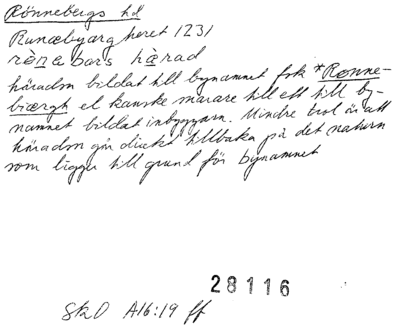 Rönnebergs hd
Runæbyærg heret 1231
rònabárs hàrad
häradsn bildat till bynamnet fsk *Rønne-
biærgh el kanske snarare till ett till by-
namnet bildat inbyggarn. Mindre trol är att
häradsn går direkt tillbaka på det naturn
som ligger till grund för bynamnet
28116
SkO A16:19 ff